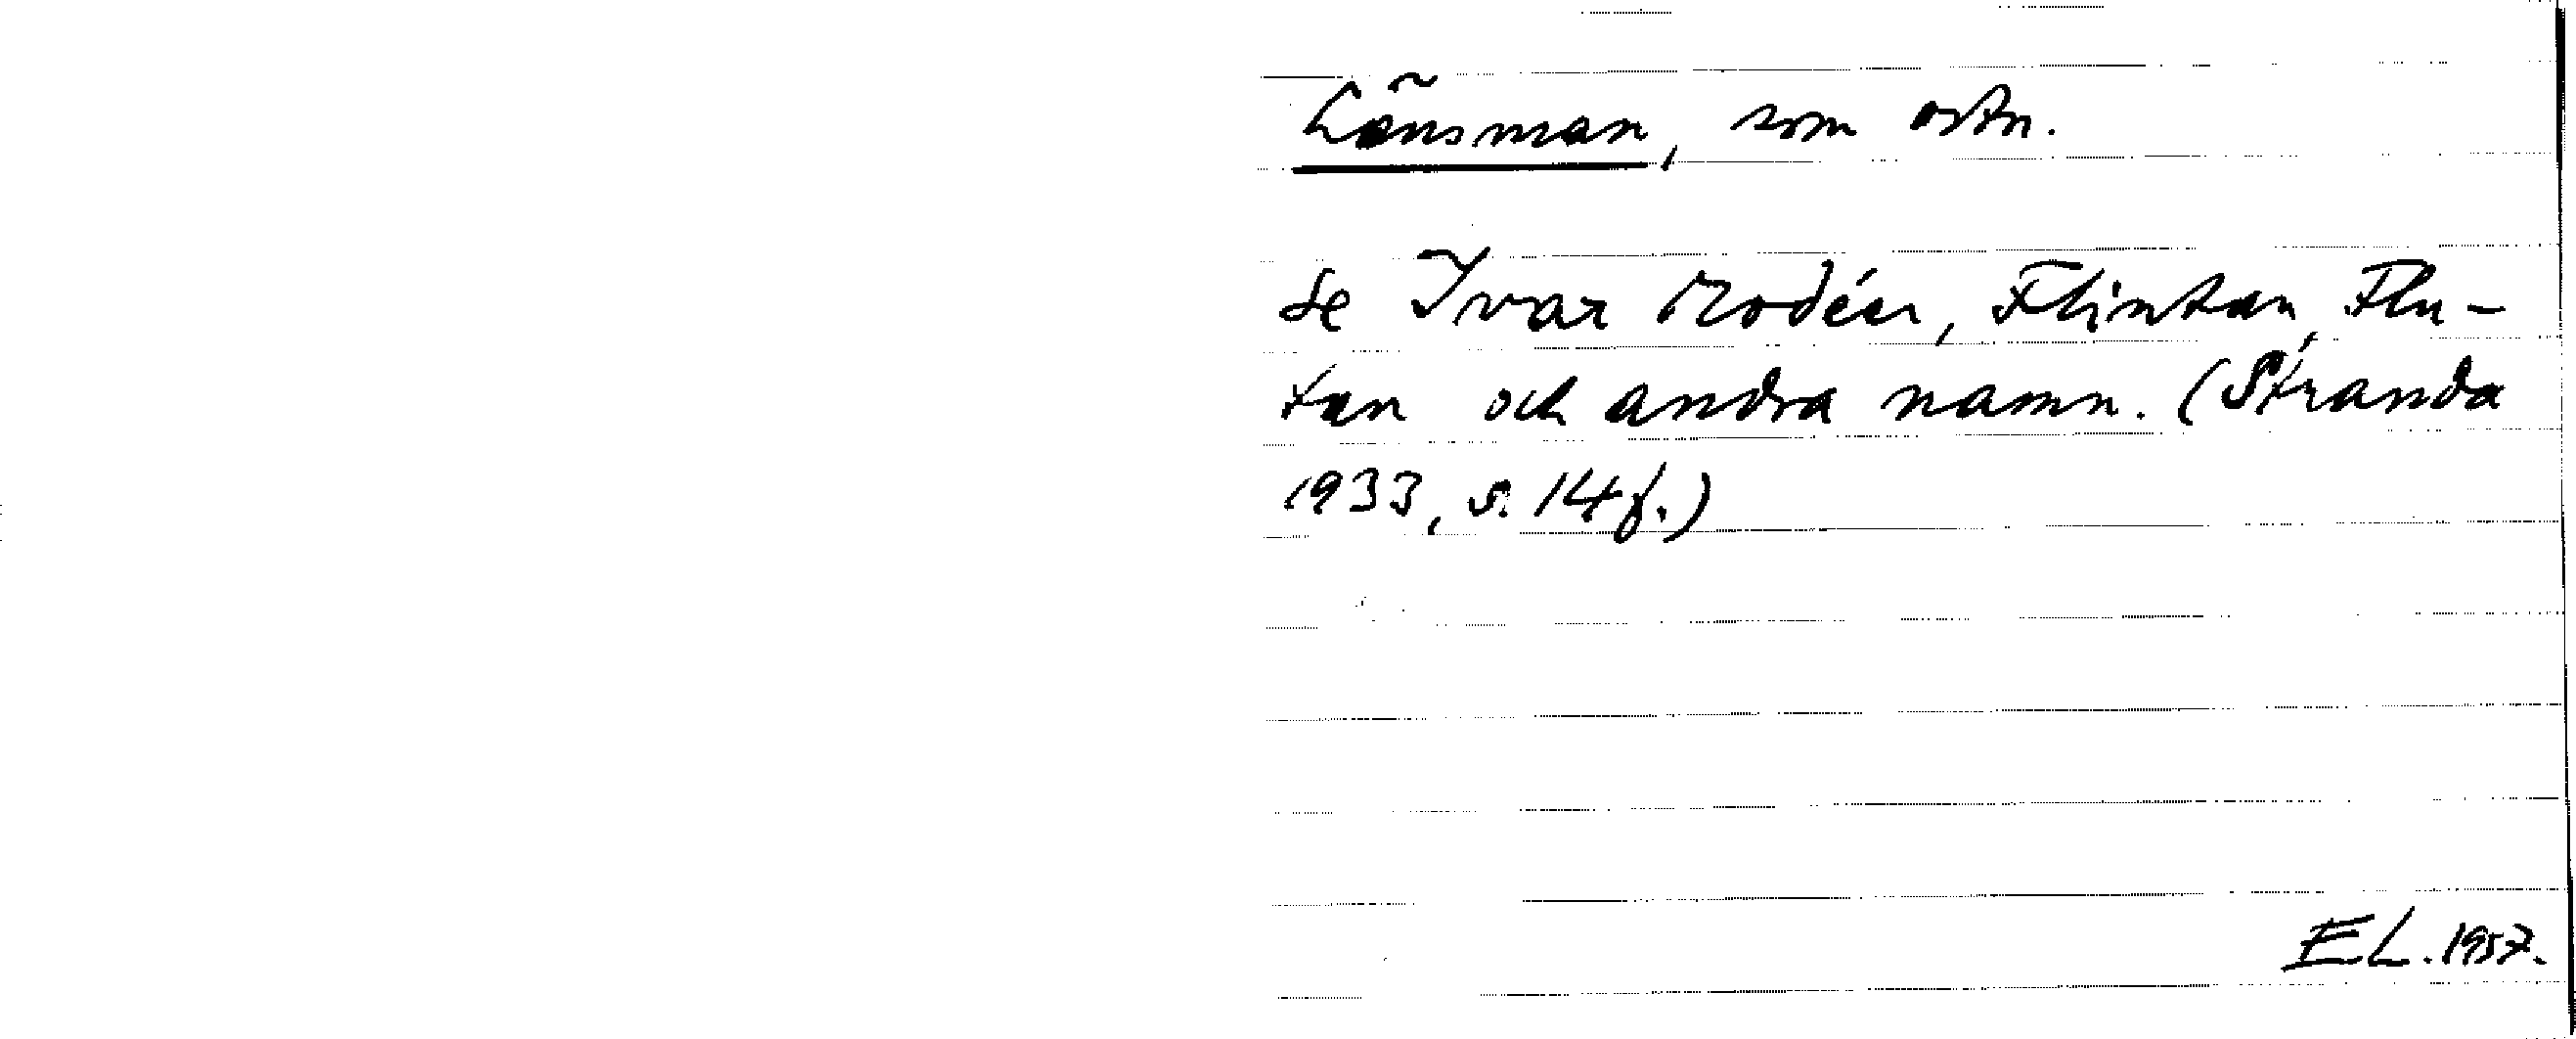 Länsman, som ortn.
Se Ivar Modéer, Flintan, Flu-
tan och andra namn. (Stranda
1933, s. 14 f.)
EL. 1957.